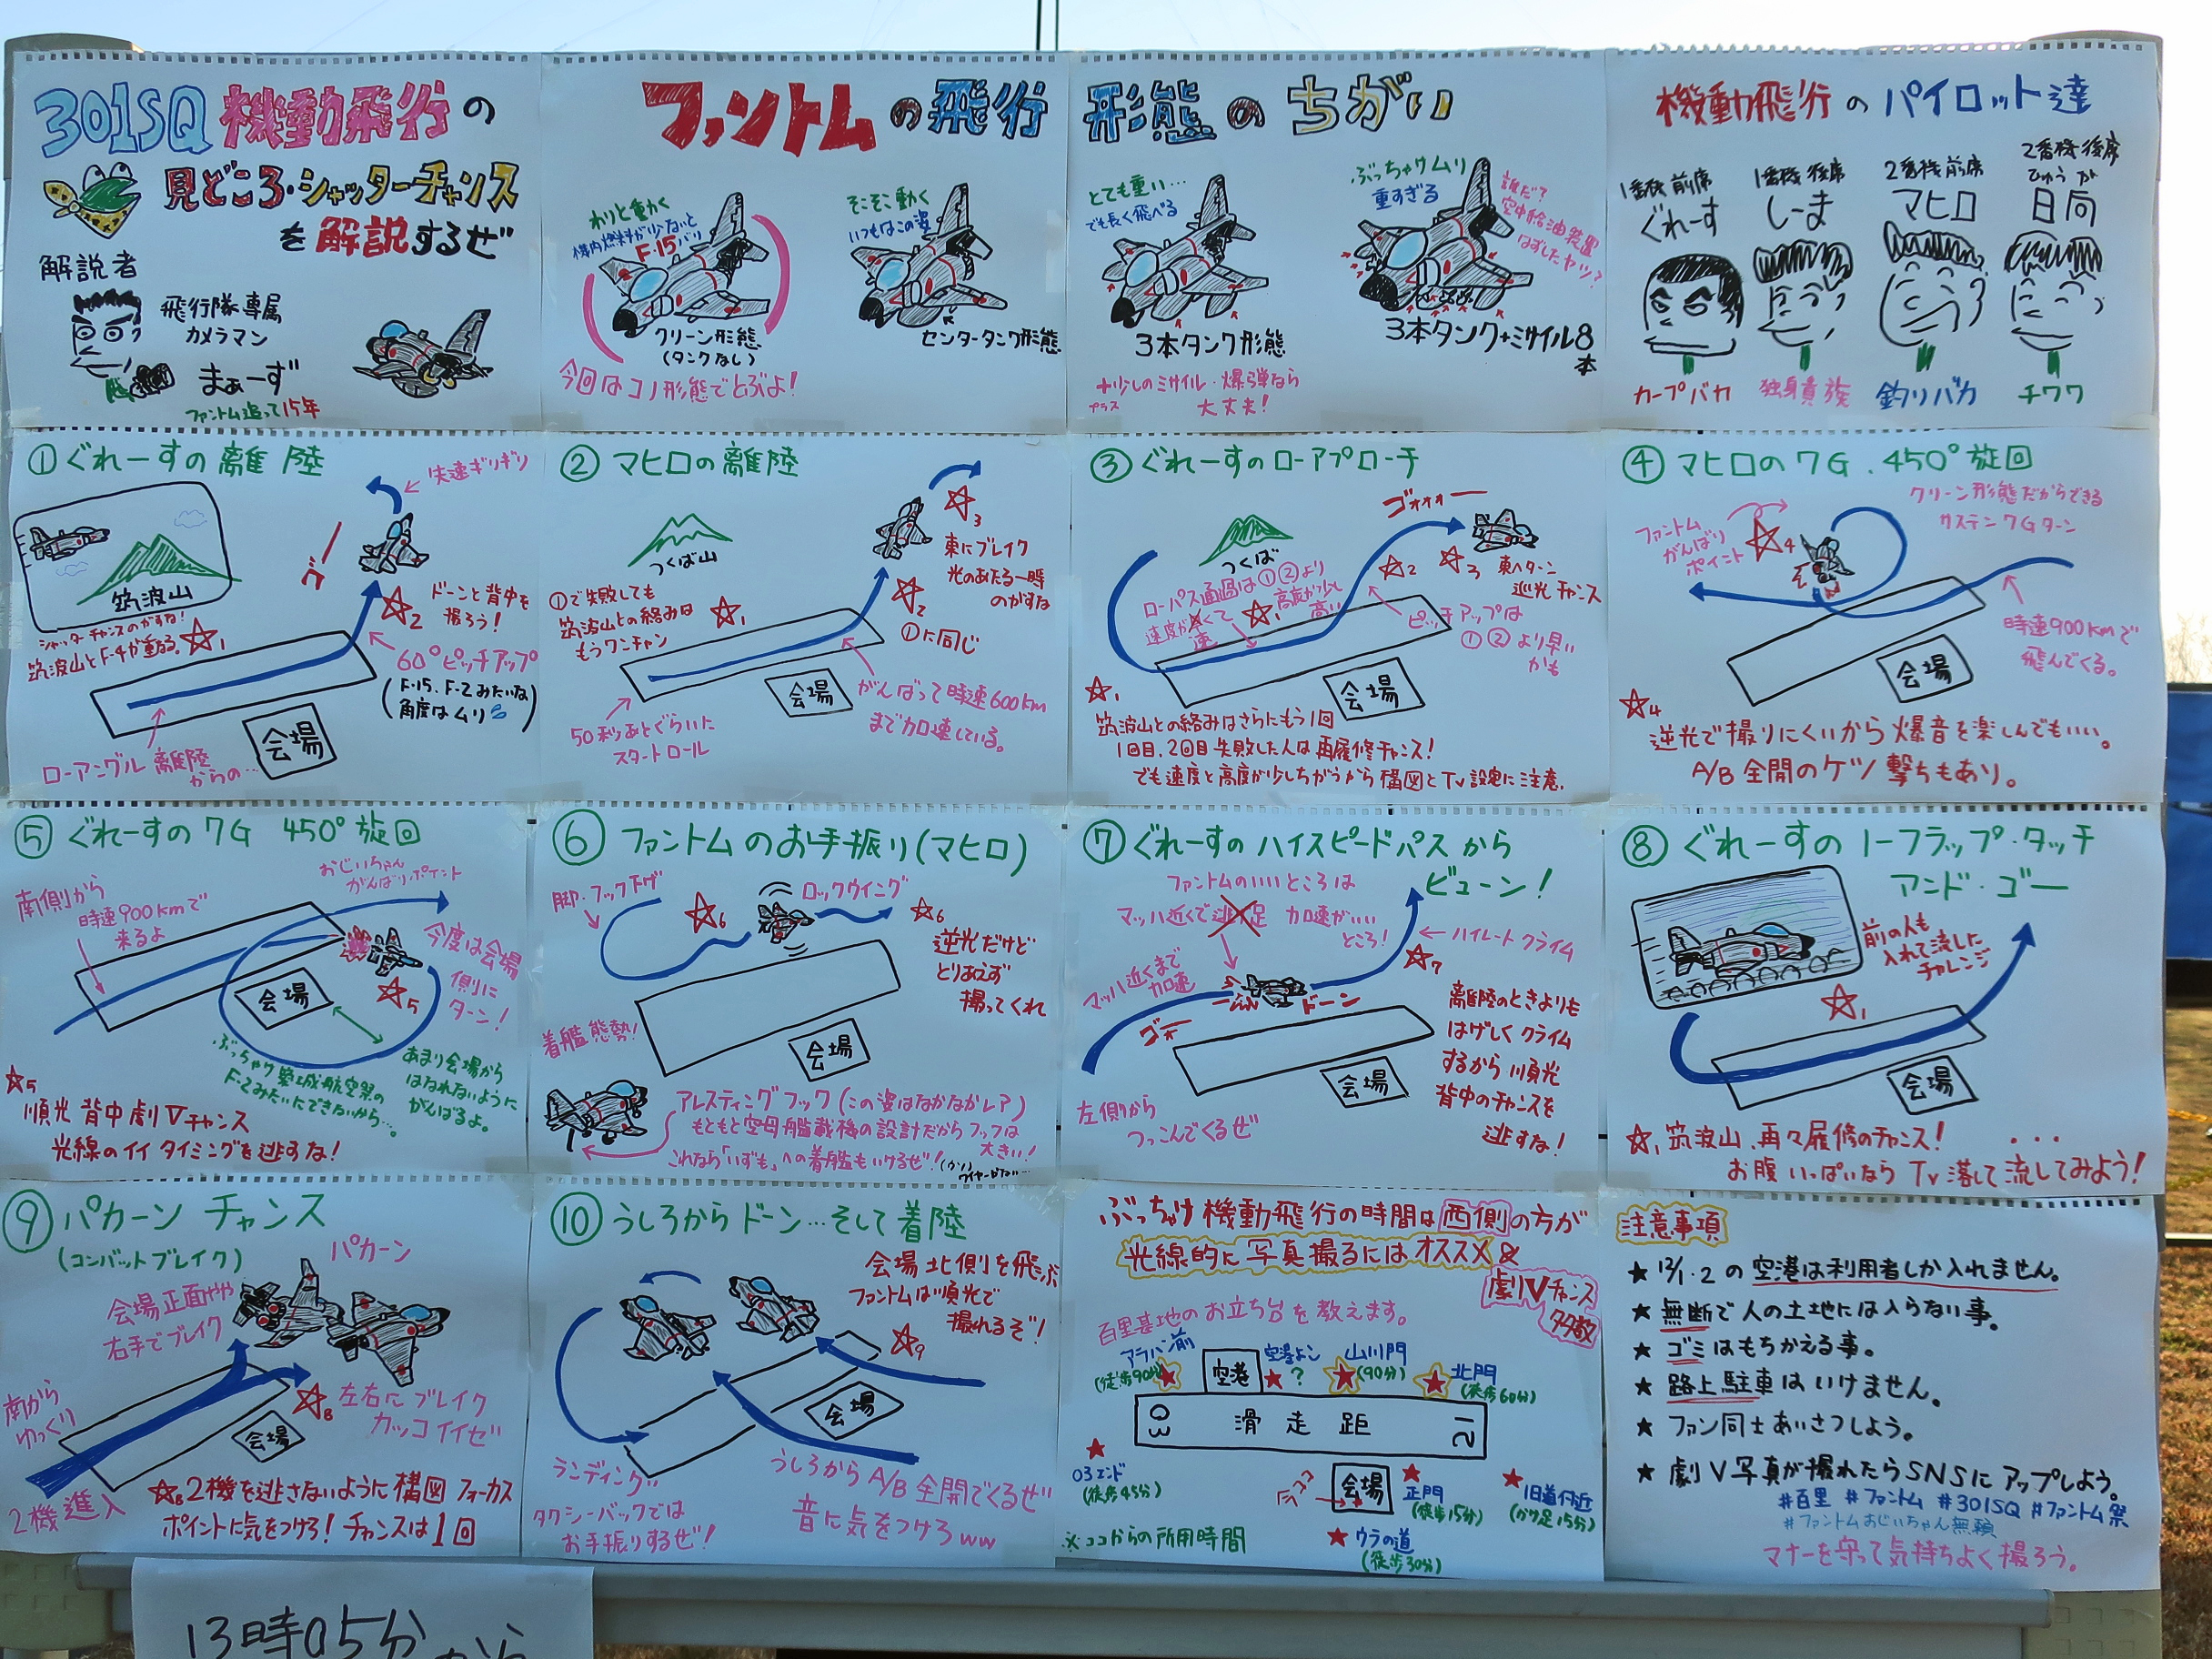 301SQ 機動飛行の
見どころ・シャッターチャンス
を解説するぜ
解説者
飛行隊専属
カメラマン
まぁーず
ファントム追って15年
ファントムの飛行形態のちがい
わりと動く
機内燃料が少ないと
F-15バリ
クリーン形態
(タンクなし)
今回はコノ形態でとぶよ!
そこそこ動く
いつもはこの姿
センタータンク形態
とても重い…
でも長く飛べる
3本タンク形態
+少しのミサイル・爆弾なら
プラス
大丈夫!
ぶっちゃけムリ
重すぎる
誰だ?
空中給油装置
はずしたヤツ?
3本タンク+ミサイル8
本
機動飛行のパイロット達
1番機前席
ぐれーす
カープバカ
1番機後席
しーま
独身貴族
2番機前席
マヒロ
釣りバカ
2番機後席
ひゅうが
日向
チワワ
①ぐれーすの離陸
失速ギリギリ
筑波山
シャッターチャンスのがすな!
筑波山とF-4が重なる。☆1
☆2
ドーンと背中を
撮ろう!
60°ピッチアップ
(F-15、F-2みたいな
角度はムリ)
会場
ローアングル離陸
からの…
②マヒロの離陸
つくば山
☆3
東にブレイク
光のあたる一瞬
のがすな
①で失敗しても
筑波山との絡みは
もうワンチャン
☆1
☆2
①に同じ
会場
がんばって時速600km
まで加速している。
50秒あとぐらいに
スタートロール
③ぐれーすのローアプローチ
ゴォォォー
つくば
☆2
☆3
東へターン
逆光チャンス
ローパス通過は①②より
高度が少し
高い
速度が
速
☆1
ピッチアップは
①②より早い
かも
会場
☆1
筑波山との絡みはさらにもう1回
1回目、2回目失敗した人は再履修チャンス!
でも速度と高度が少しちがうから構図とTv設定に注意。
④マヒロの7G、450°旋回
クリーン形態だからできる
サステン7Gターン
ファントム
がんばり
ポイント
☆4
時速900kmで
飛んでくる。
会場
☆4
逆光で撮りにくいから爆音を楽しんでもいい。
A/B全開のケツ撃ちもあり。
⑤ぐれーすの7G 450°旋回
おじいちゃん
がんばりポイント
南側から
時速900kmで
来るよ
今度は会場
側に
ターン!
☆5
会場
ぶっちゃけ築城航空祭の
F-2みたいにできないから…。
あまり会場から
はなれないように
がんばるよ。
☆5
順光 背中 劇Vチャンス
光線のイイタイミングを逃すな!
⑥ファントムのお手振り(マヒロ)
脚・フック下げ
☆6
ロックウイング
☆6
逆光だけど
とりあえず
撮ってくれ
着艦態勢!
会場
アレスティングフック(この姿はなかなかレア)
もともと空母艦載機の設計だからフックは
大きい!
これなら「いずも」への着艦もいけるぜ!
⑦ぐれーすのハイスピードパスから
ビューン!
ファントムのいいところは
マッハ近くで逃 足 加速がいい
ところ!
ハイレートクライム
☆7
マッハ近くまで
加速
ゴー
ドーン
離陸のときよりも
はげしくクライム
するから順光
背中のチャンスを
逃すな!
会場
左側から
つっこんでくるぜ
⑧ぐれーすのノーフラップ・タッチ
アンド・ゴー
前の人も
入れて流した
チャレンジ
☆1
会場
☆1筑波山、再々履修のチャンス! ・・・
お腹いっぱいならTv落して流してみよう!
⑨パカーン チャンス
(コンバットブレイク)
パカーン
会場正面やや
右手でブレイク
南から
ゆっくり
☆8
左右にブレイク
カッコイイゼ
会場
2機進入
☆8 2機を逃さないように構図フォーカス
ポイントに気をつけろ!チャンスは1回
⑩うしろからドーン…そして着陸
会場北側を飛ぶ
ファントムは順光で
撮れるぞ!
☆9
会場
ランディング
タクシーバックでは
お手振りするぜ!
うしろからA/B全開でくるぜ
音に気をつけろww
ぶっちゃけ機動飛行の時間は西側の方が
光線的に写真撮るにはオススメ&
劇Vチャンス
多数
百里基地のお立ち台を教えます。
アラハン前
(徒歩90分)
空港
空港よこ
★?
山川門
(90分)
北門
(徒歩60分)
03
滑走距
21
03エンド
(徒歩45分)
ココ
会場
正門
(徒歩15分)
旧道付近
(かけ足15分)
ウラの道
(徒歩30分)
※ココからの所用時間
注意事項
★12/1・2の空港は利用者しか入れません。
★無断で人の土地には入らない事。
★ゴミはもちかえる事。
★路上駐車はいけません。
★ファン同士あいさつしよう。
★劇V写真が撮れたらSNSにアップしよう。
#百里 #ファントム #301SQ #ファントム祭
#ファントムおじいちゃん無頼
マナーを守って気持ちよく撮ろう。
13時05分から